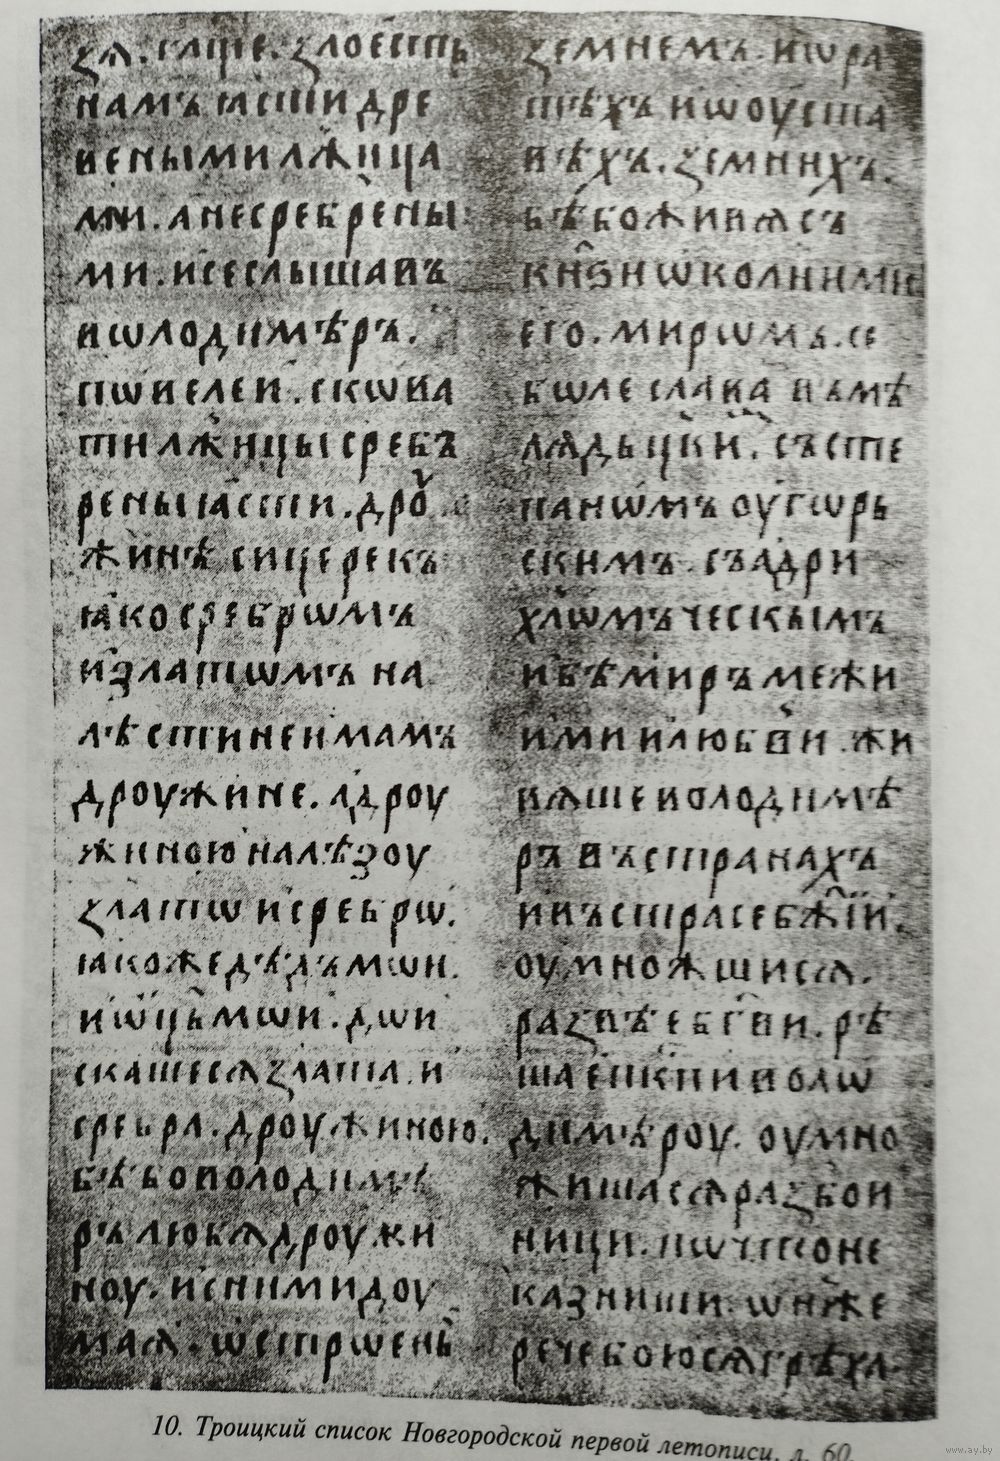 ꙁѧ. гл҃ще. ꙁлоесть
намъꙗстидре
венымилъжица
ми. анесребрены
ми. иселышавъ
вѡлодимѣръ.
пѡвелеи. скѡва
тилъжицысребъ
реныꙗсти. дрꙋ
жинѣ. сицерекъ
ꙗкосребрѡмъ
иꙁлатѡмъ на
лѣстинеимамъ
дроужине. адроу
жиноюналѣꙁоу
ꙁлатѡ исребрѡ.
ꙗкожедѣдъмѡи.
иѡц҃ьмѡи. дѡи
скашесѧꙁлата. и
сребра. дроужиною.
бѣбоволодимѣ
ръ любѧдроужи
ноу. иснимидоу
маѧ. ѡстрѡень
ꙁемнемъ. иѡра
тѣхъ иѡоуста
вѣхъ. ꙁемнихъ.
бѣбоживѧсъ
кн҃ѕиѡколними
его. миромъ. се
бѡлеслава въмѣ
лѧдьцкии. състе
панѡмъ оугѡрь
скимъ. съадри
хл҃ѡмъческымъ
ибѣмиръмежи
ими илюбви. жи
вѧшеволодимѣ
ръ въстранахъ
ивъстрасебж҃їи.
оумножишисѧ.
раꙁвѣебгв҃и. рѣ
шаепискпивол҃ѡ
димѣроу. оумно
жишасѧраꙁбои
ници. пѡчтоне
каꙁниши. ѡнже
речебоюсѧгрѣха.
10. Троицкий список Новгородской первой летописи, л. 60.
www.ay.by